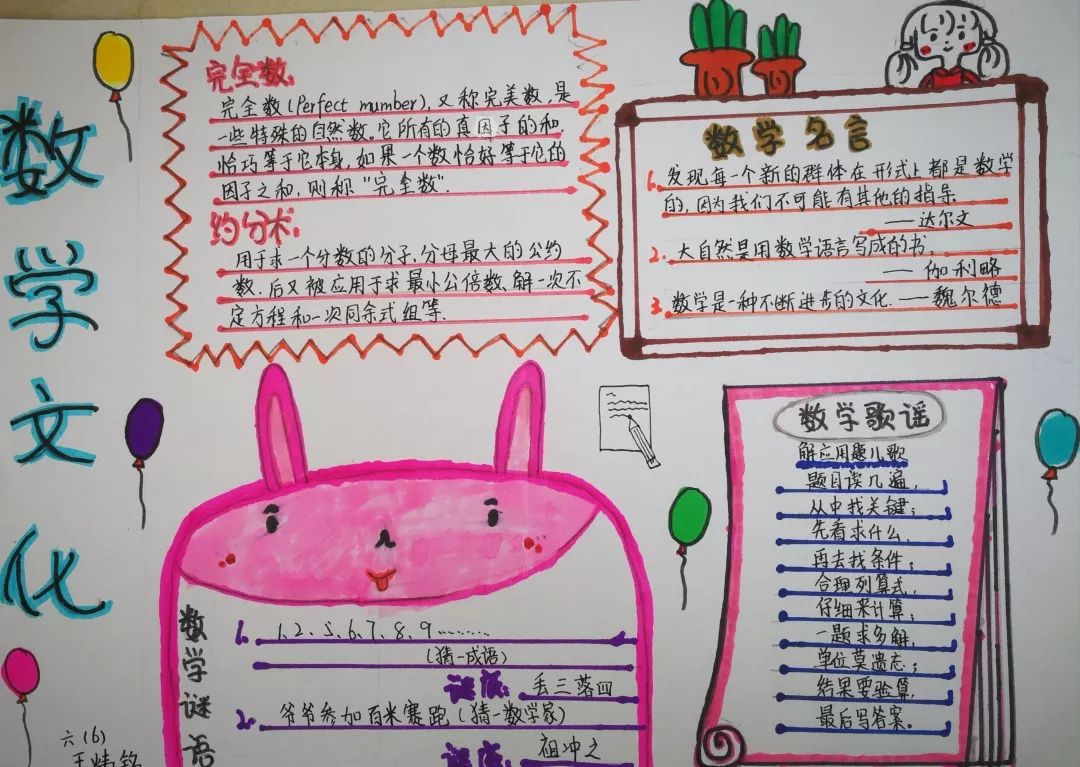 数学文化
完全数:
完全数(Perfect mumber),又称完美数,是
一些特殊的自然数.它所有的真因子的和,
恰巧等于它本身,如果一个数恰好等于它的
因子之和,则称“完全数”.
约分术:
用于求一个分数的分子,分母最大的公约
数.后又被应用于求最小公倍数、解一次不
定方程和一次同余式组等.
数学名言
1.发现每一个新的群体在形式上都是数学
的,因为我们不可能有其他的指导
——达尔文
2.大自然是用数学语言写成的书,
——伽利略
3.数学是一种不断进步的文化.——魏尔德
数学歌谣
解应用题儿歌
题目读几遍,
从中找关键;
先看求什么,
再去找条件;
合理列算式,
仔细来计算;
一题求多解,
单位莫遗忘;
结果要验算,
最后写答案。
数学谜语
1. 1、2、5、6、7、8、9………
(猜一成语)
谜底:丢三落四
2. 爷爷参加百米赛跑(猜一数学家)
谜底:祖冲之
六(6)